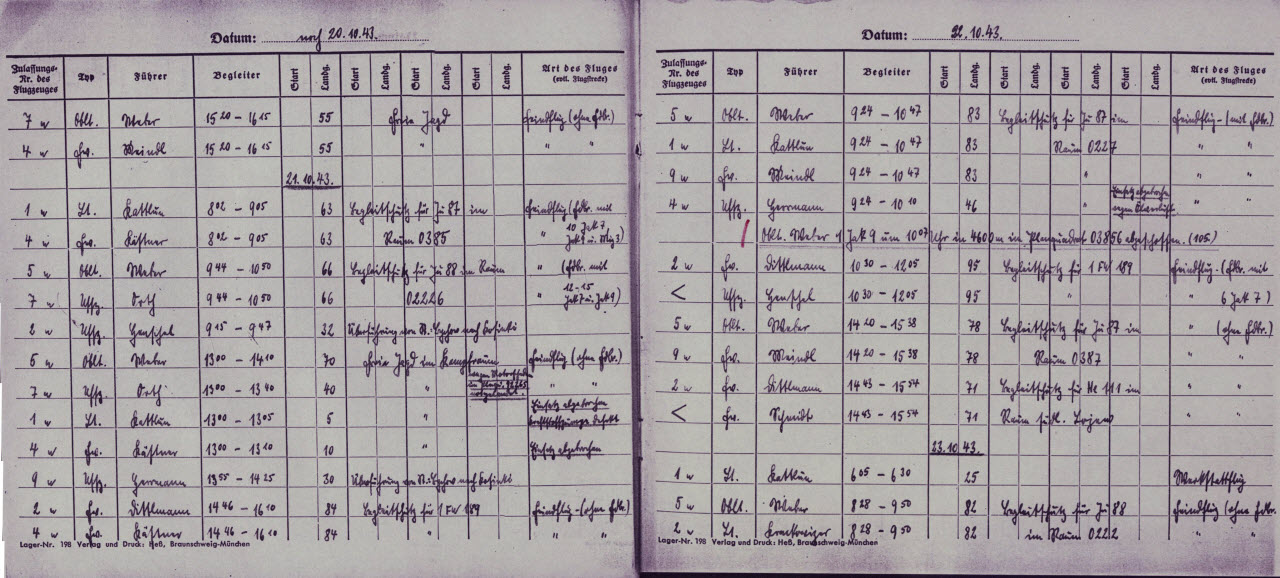 Datum: noch 20.10.43.
Zulassungs-Nr. des Flugzeuges Typ Führer Begleiter Start Landg. Start Landg. Start Landg. Start Landg. Art des Fluges (evtl. Flugstrecke)
7 w Oblt. Weber 15 20 – 16 15 55 Freie Jagd Feindflug (ohne Fdbr.)
4 w Fw. Meindl 15 20 – 16 15 55 " " "
21.10.43.
1 w Lt. Kattlun 8 02 – 9 05 63 Begleitschutz für Ju 87 im Feindflug (Fdbr. mit
4 w Fw. Küstner 8 02 – 9 05 63 Raum 0385 " 10 Jak 7 Jak 9 u. Mig 3)
5 w Oblt. Weber 9 44 – 10 50 66 Begleitschutz für Ju 88 im Raum " (Fdbr. mit
7 w Uffz. Orth 9 44 – 10 50 66 02226 " 12–15 Jak 7 u. Jak 9)
2 w Uffz. Henschel 9 15 – 9 47 32 Überführung von nach
5 w Oblt. Weber 13 00 – 14 10 70 Freie Jagd im Kampfraum Feindflug (ohne Fdbr.)
7 w Uffz. Orth 13 00 – 13 40 40 " " "
1 w Lt. Kattlun 13 00 – 13 05 5 " Einsatz abgebrochen defekt
4 w Fw. Küstner 13 00 – 13 10 10 " Einsatz abgebrochen
9 w Uffz. Herrmann 13 55 – 14 25 30 Überführung von nach
2 w Fw. Dittlmann 14 46 – 16 10 84 Begleitschutz für 1 FW 189 Feindflug – (ohne Fdbr.)
4 w Fw. Küstner 14 46 – 16 10 84 " "
Lager-Nr. 198 Verlag und Druck: Heß, Braunschweig-München
Datum: 22.10.43.
Zulassungs-Nr. des Flugzeuges Typ Führer Begleiter Start Landg. Start Landg. Start Landg. Start Landg. Art des Fluges (evtl. Flugstrecke)
5 w Oblt. Weber 9 24 – 10 47 83 Begleitschutz für Ju 87 im Feindflug – (mit Fdbr.)
1 w Lt. Kattlun 9 24 – 10 47 83 Raum 0227 " "
9 w Fw. Meindl 9 24 – 10 47 83 " " "
4 w Uffz. Herrmann 9 24 – 10 10 46 " Einsatz abgebrochen wegen Ölverlust.
Oblt. Weber 1 Jak 9 um 10 07 Uhr in 4600 m im Planquadrat 03856 abgeschossen. (105)
2 w Fw. Dittlmann 10 30 – 12 05 95 Begleitschutz für 1 FW 189 Feindflug – (Fdbr. mit
< Uffz. Henschel 10 30 – 12 05 95 " " 6 Jak 7)
5 w Oblt. Weber 14 20 – 15 38 78 Begleitschutz für Ju 87 im " (ohne Fdbr.)
9 w Fw. Meindl 14 20 – 15 38 78 Raum 0387 " "
2 w Fw. Dittlmann 14 43 – 15 54 71 Begleitschutz für He 111 im " "
< Fw. Schmidt 14 43 – 15 54 71 Raum südl. " "
23.10.43.
1 w Lt. Kattlun 6 05 – 6 30 25 Werkstattflug
5 w Oblt. Weber 8 28 – 9 50 82 Begleitschutz für Ju 88 Feindflug (ohne Fdbr.
2 w Lt. 8 28 – 9 50 82 im Raum 0222 " "
Lager-Nr. 198 Verlag und Druck: Heß, Braunschweig-München